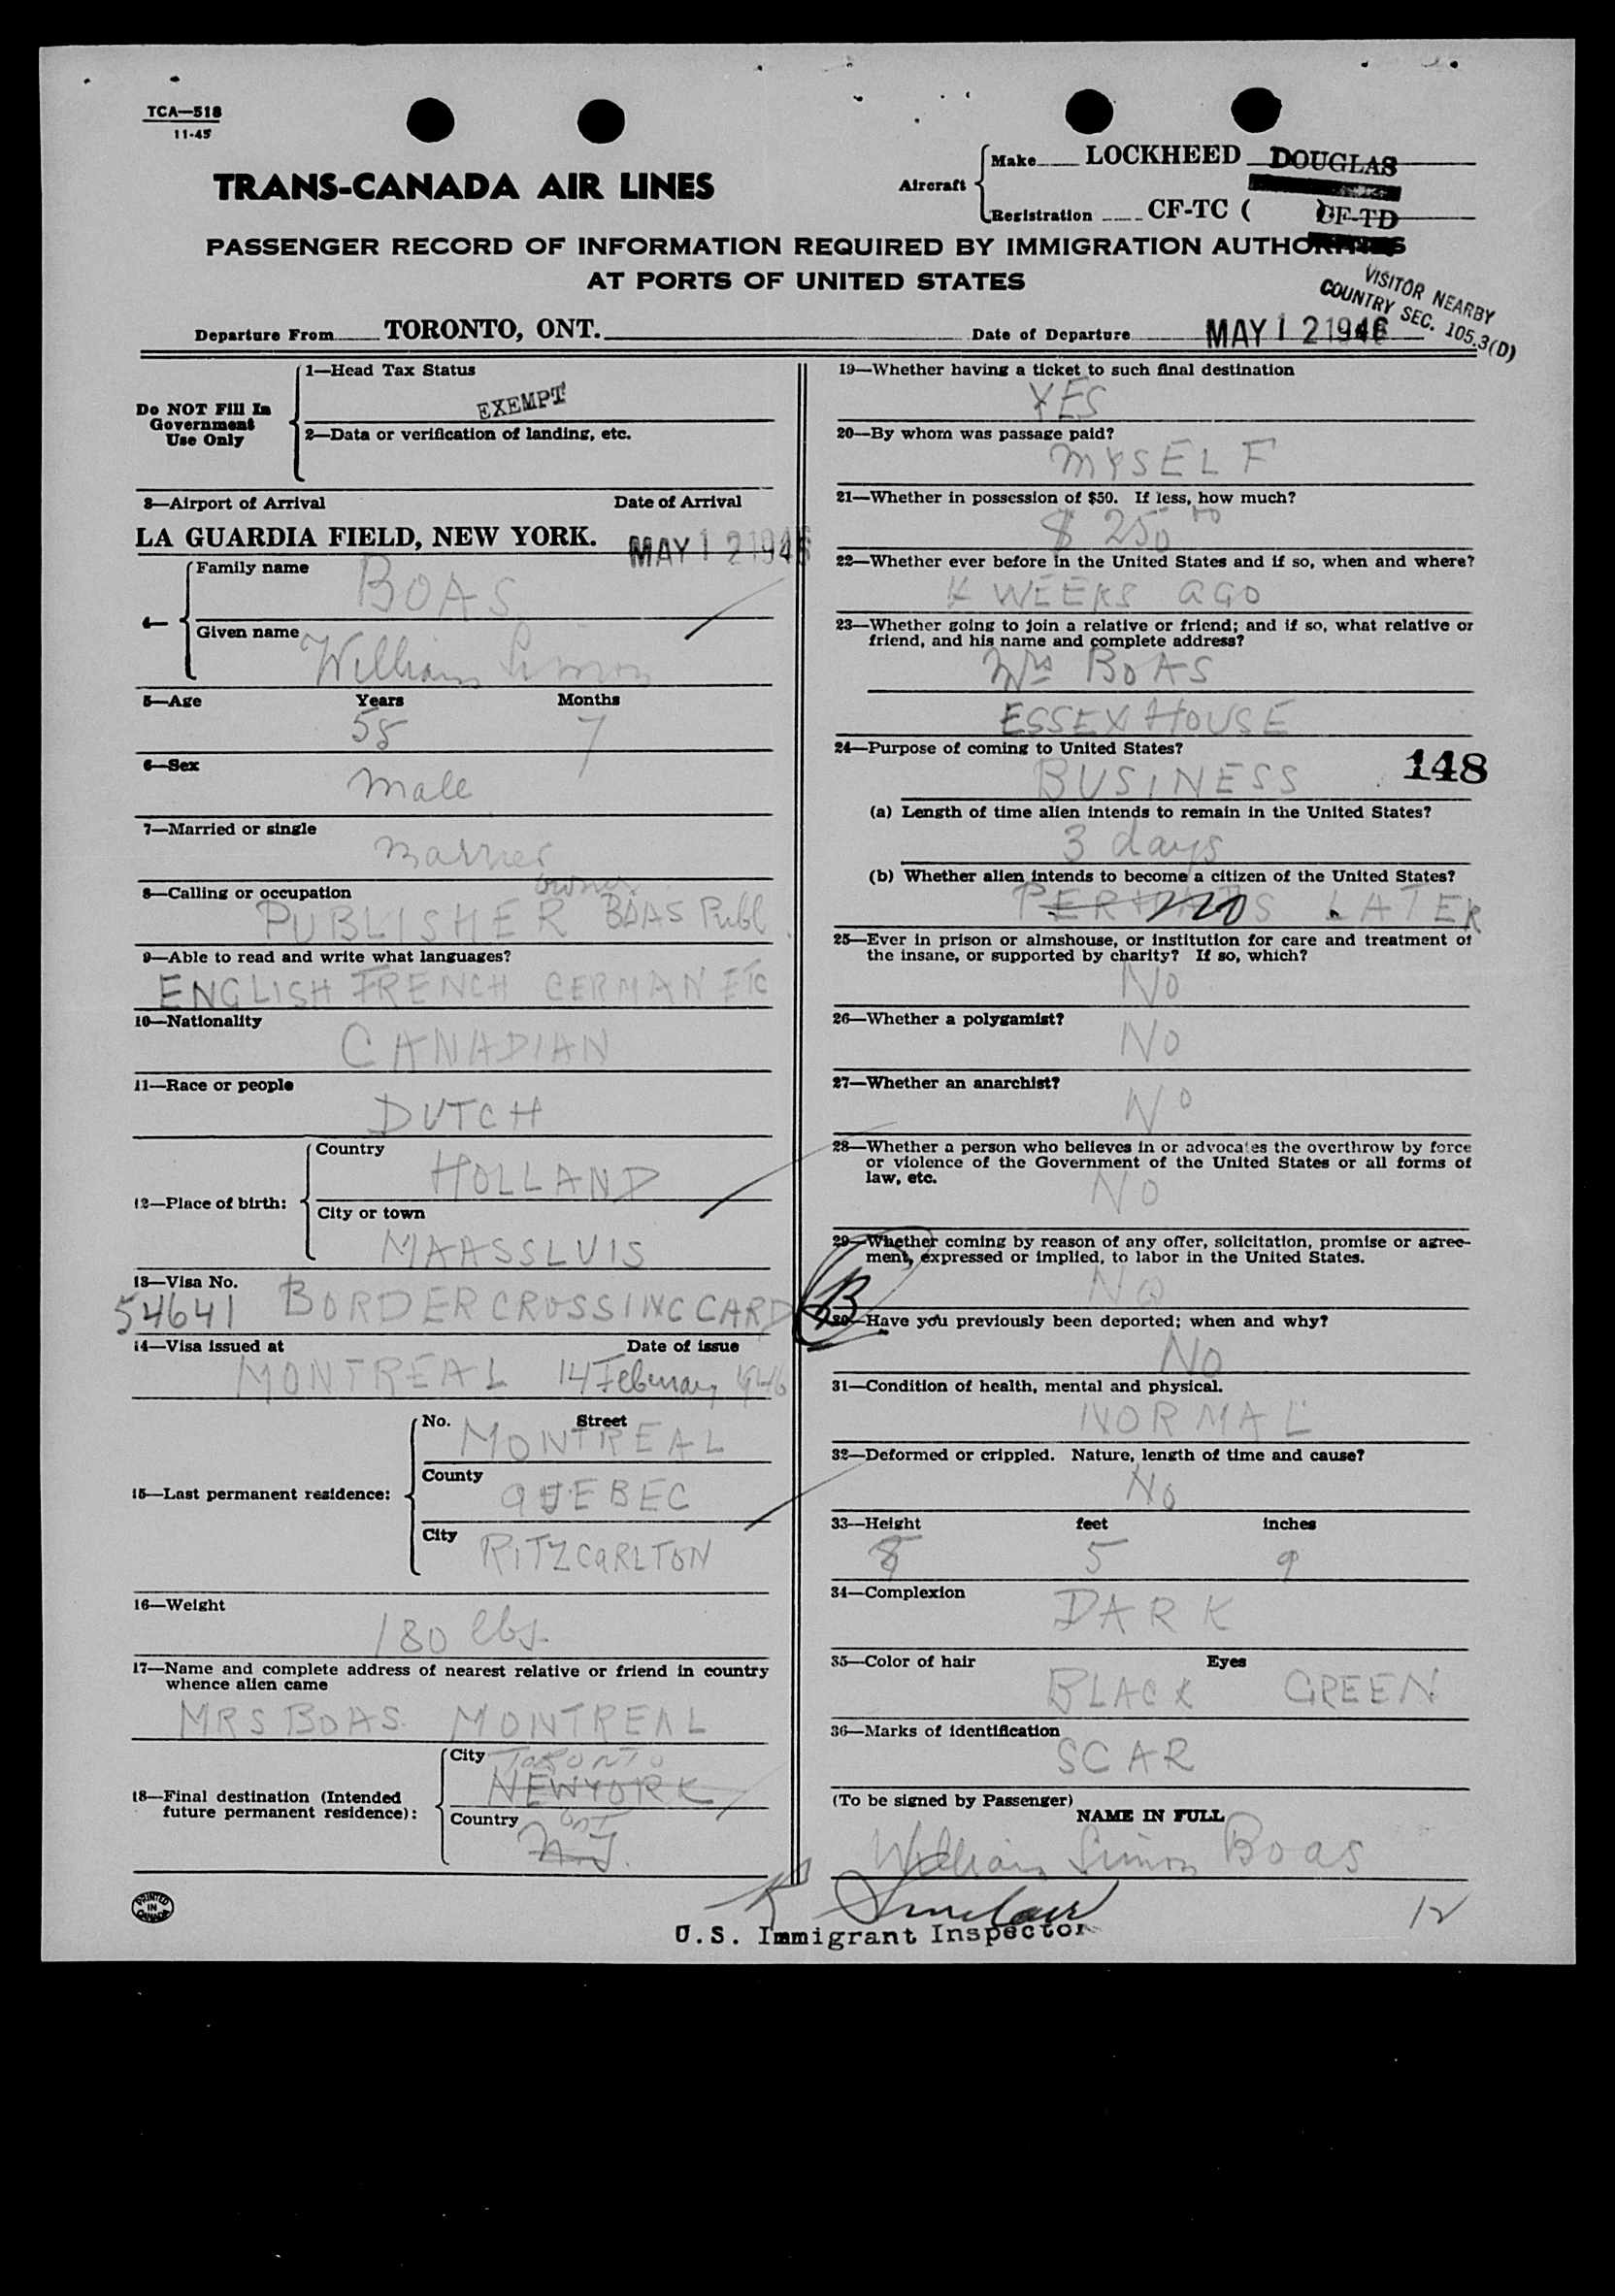 TCA—518
11-45
TRANS-CANADA AIR LINES
Aircraft
Make LOCKHEED DOUGLAS
Registration CF-TC ( CF-TD
PASSENGER RECORD OF INFORMATION REQUIRED BY IMMIGRATION AUTHORITIES
AT PORTS OF UNITED STATES
VISITOR NEARBY
COUNTRY SEC. 105.3(D)
Departure From TORONTO, ONT. Date of Departure MAY 12 1946
Do NOT Fill In
Government
Use Only
1—Head Tax Status
EXEMPT
2—Data or verification of landing, etc.
3—Airport of Arrival Date of Arrival
LA GUARDIA FIELD, NEW YORK. MAY 12 1946
4—
Family name
BOAS
Given name
William Simon
5—Age Years Months
58 7
6—Sex
Male
7—Married or single
Married
8—Calling or occupation
owner
PUBLISHER BOAS Publ.
9—Able to read and write what languages?
ENGLISH FRENCH GERMAN ETC
10—Nationality
CANADIAN
11—Race or people
DUTCH
12—Place of birth:
Country
HOLLAND
City or town
MAASSLUIS
13—Visa No.
54641 BORDER CROSSING CARD
14—Visa issued at Date of issue
MONTREAL 14 February 1946
15—Last permanent residence:
No. Street
MONTREAL
County
QUEBEC
City
RITZCARLTON
16—Weight
180 lbs.
17—Name and complete address of nearest relative or friend in country
whence alien came
MRS BOAS. MONTREAL
18—Final destination (Intended
future permanent residence):
City TORONTO
NEWYORK
Country ONT
PRINTED
IN
CANADA
19—Whether having a ticket to such final destination
YES
20—By whom was passage paid?
MYSELF
21—Whether in possession of $50. If less, how much?
$ 250
22—Whether ever before in the United States and if so, when and where?
4 WEEKS AGO
23—Whether going to join a relative or friend; and if so, what relative or
friend, and his name and complete address?
Mrs BOAS
ESSEX HOUSE
24—Purpose of coming to United States?
BUSINESS
148
(a) Length of time alien intends to remain in the United States?
3 days
(b) Whether alien intends to become a citizen of the United States?
PERHAPS no LATER
25—Ever in prison or almshouse, or institution for care and treatment of
the insane, or supported by charity? If so, which?
No
26—Whether a polygamist?
No
27—Whether an anarchist?
No
28—Whether a person who believes in or advocates the overthrow by force
or violence of the Government of the United States or all forms of
law, etc.
No
29—Whether coming by reason of any offer, solicitation, promise or agree-
ment, expressed or implied, to labor in the United States.
No
B
30—Have you previously been deported; when and why?
No
31—Condition of health, mental and physical.
NORMAL
32—Deformed or crippled. Nature, length of time and cause?
No
33—Height feet inches
5 9
34—Complexion
DARK
35—Color of hair Eyes
BLACK GREEN
36—Marks of identification
SCAR
(To be signed by Passenger)
NAME IN FULL
William Simon Boas
Sinclair
12
U.S. Immigrant Inspector